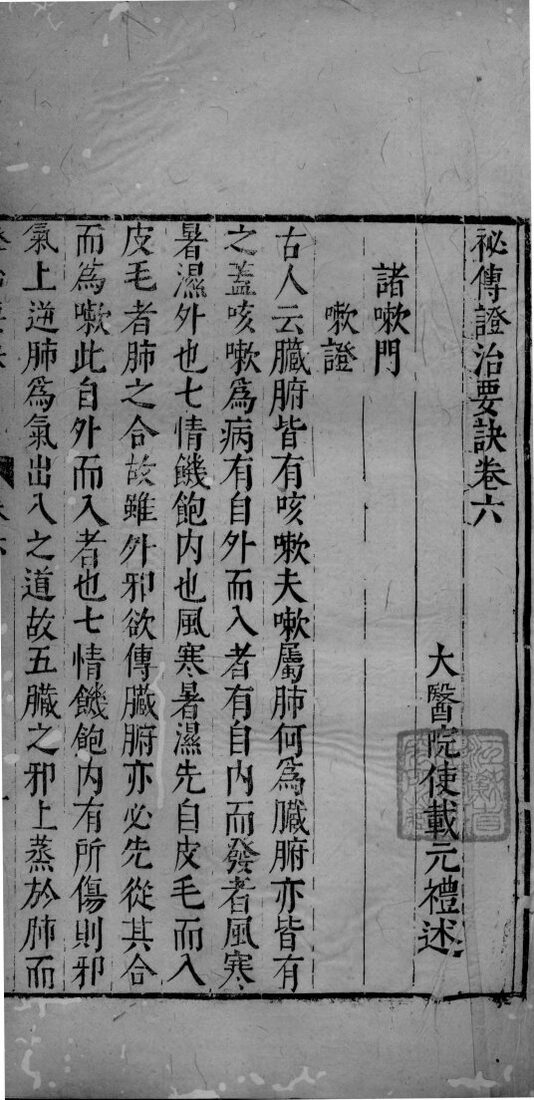 祕傳證治要訣卷六
大醫院使載元禮述
諸嗽門
嗽證
古人云臟腑皆有咳嗽夫嗽屬肺何爲臟腑亦皆有
之蓋咳嗽爲病有自外而入者有自內而發者風寒
暑濕外也七情饑飽內也風寒暑濕先自皮毛而入
皮毛者肺之合故雖外邪欲傳臟腑亦必先從其合
而爲嗽此自外而入者也七情饑飽內有所傷則邪
氣上逆肺爲氣出入之道故五臟之邪上蒸於肺而